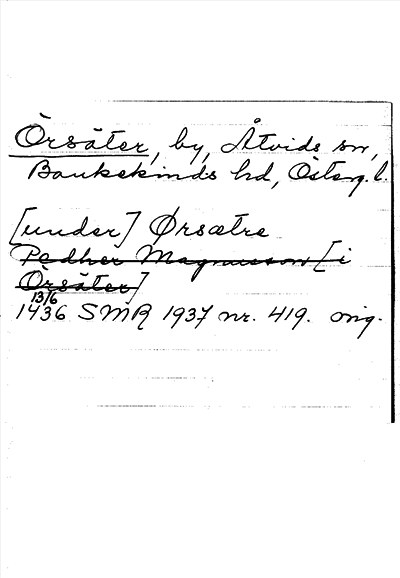 Örsäter, by, Åtvids sn,
Bankekinds hd, Österg. l.
[under] Ørsætre
Pedher Magnusson [i
Örsäter]
13/6
1436 SMR 1937 nr. 419. orig.